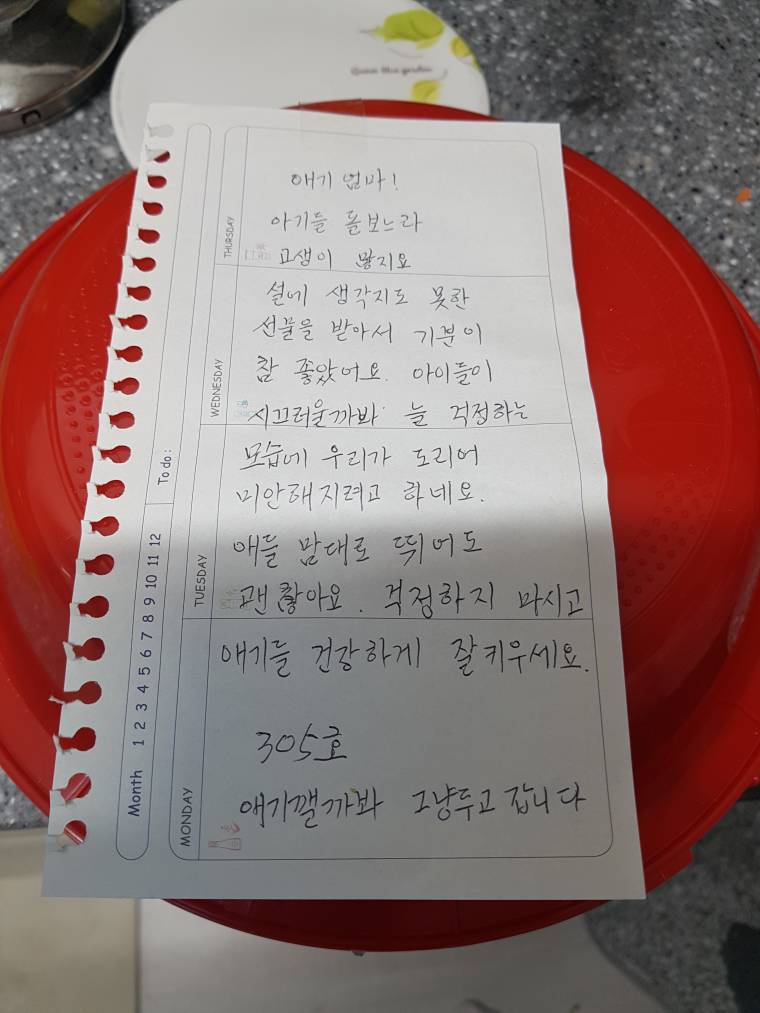 애기 엄마!
아기들 돌보느라
고생이 많지요
설에 생각지도 못한
선물을 받아서 기분이
참 좋았어요. 아이들이
시끄러울까봐 늘 걱정하는
모습에 우리가 도리어
미안해지려고 하네요.
애들 맘대로 뛰어도
괜찮아요. 걱정하지 마시고
애기들 건강하게 잘키우세요.
305호
애기깰까봐 그냥두고 갑니다
THURSDAY
WEDNESDAY
TUESDAY
MONDAY
To do :
Month 1 2 3 4 5 6 7 8 9 10 11 12